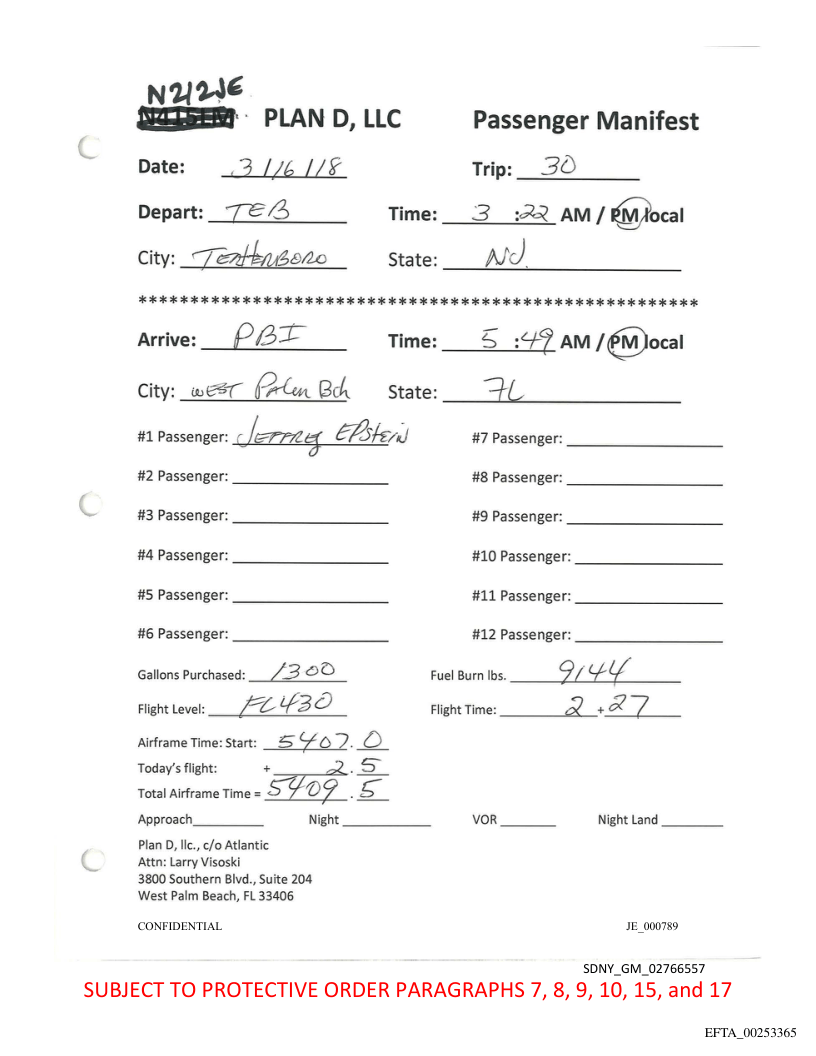 N212JE
N415LM PLAN D, LLC Passenger Manifest
Date: 3/16/18 Trip: 30
Depart: TEB Time: 3 :22 AM / PM local
City: TETERBORO State: NJ
******************************************************
Arrive: PBI Time: 5 :49 AM / PM local
City: WEST Palm Bch State: FL
#1 Passenger: JEFFREY EPStEiN #7 Passenger:
#2 Passenger: #8 Passenger:
#3 Passenger: #9 Passenger:
#4 Passenger: #10 Passenger:
#5 Passenger: #11 Passenger:
#6 Passenger: #12 Passenger:
Gallons Purchased: 1300 Fuel Burn lbs. 9144
Flight Level: FL430 Flight Time: 2 + 27
Airframe Time: Start: 5407. 0
Today's flight: + 2. 5
Total Airframe Time = 5409 . 5
Approach Night VOR Night Land
Plan D, llc., c/o Atlantic
Attn: Larry Visoski
3800 Southern Blvd., Suite 204
West Palm Beach, FL 33406
CONFIDENTIAL JE_000789
SDNY_GM_02766557
SUBJECT TO PROTECTIVE ORDER PARAGRAPHS 7, 8, 9, 10, 15, and 17
EFTA_00253365